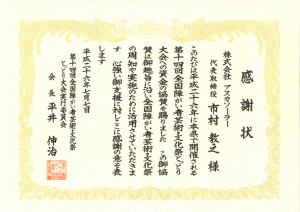 感謝状
株式会社 アスカソーラー
代表取締役 市村教之 様
このたびは平成二十六年に本県で開催される
第十四回全国障がい者芸術・文化祭とっとり
大会への資金の協賛を賜りました この御協
賛は御趣旨に沿い全国障がい者芸術・文化祭
の周知や実施のために活用させていただきま
す 心強い御支援に対しここに感謝の意を表
します
平成二十六年七月七日
第十四回全国障がい者芸術・文化祭
とっとり大会実行委員会
会長 平井伸治